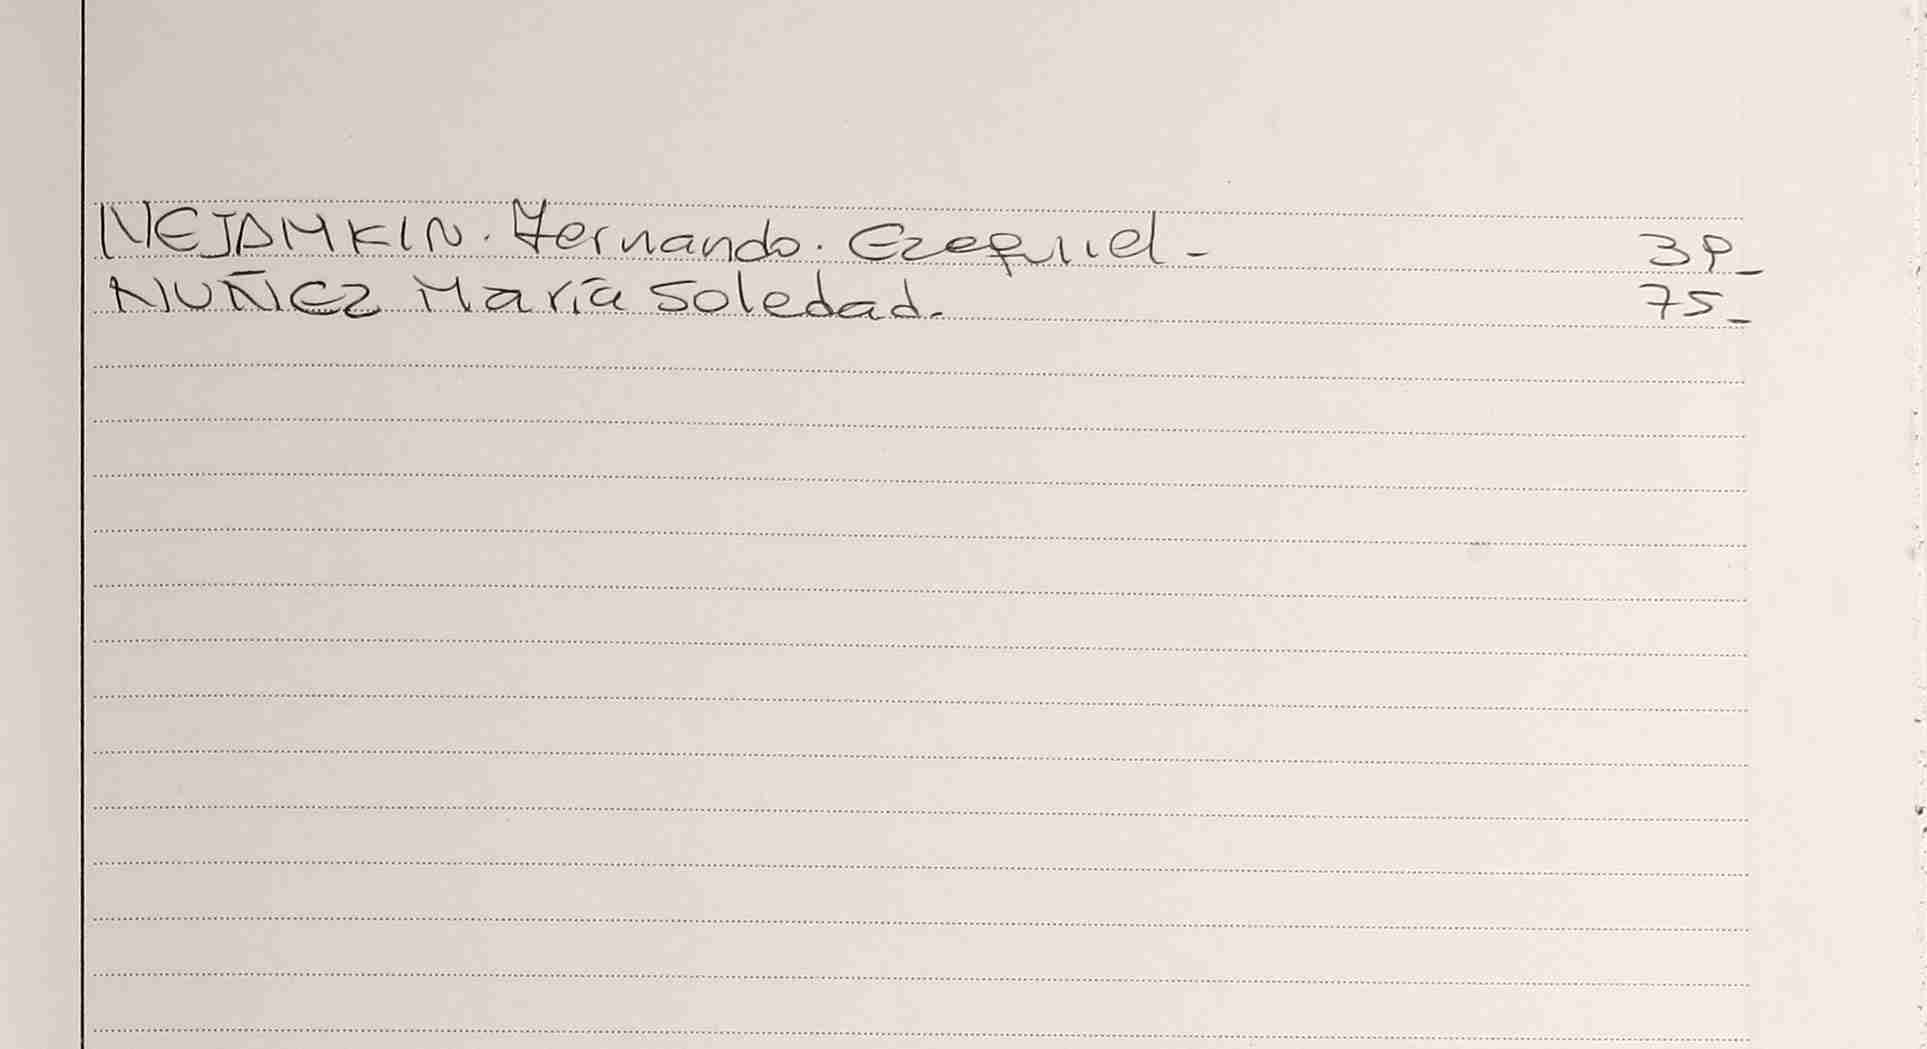 NEJAMKIN. Fernando. Ezequiel - 39_
NUÑEZ María Soledad. 75_